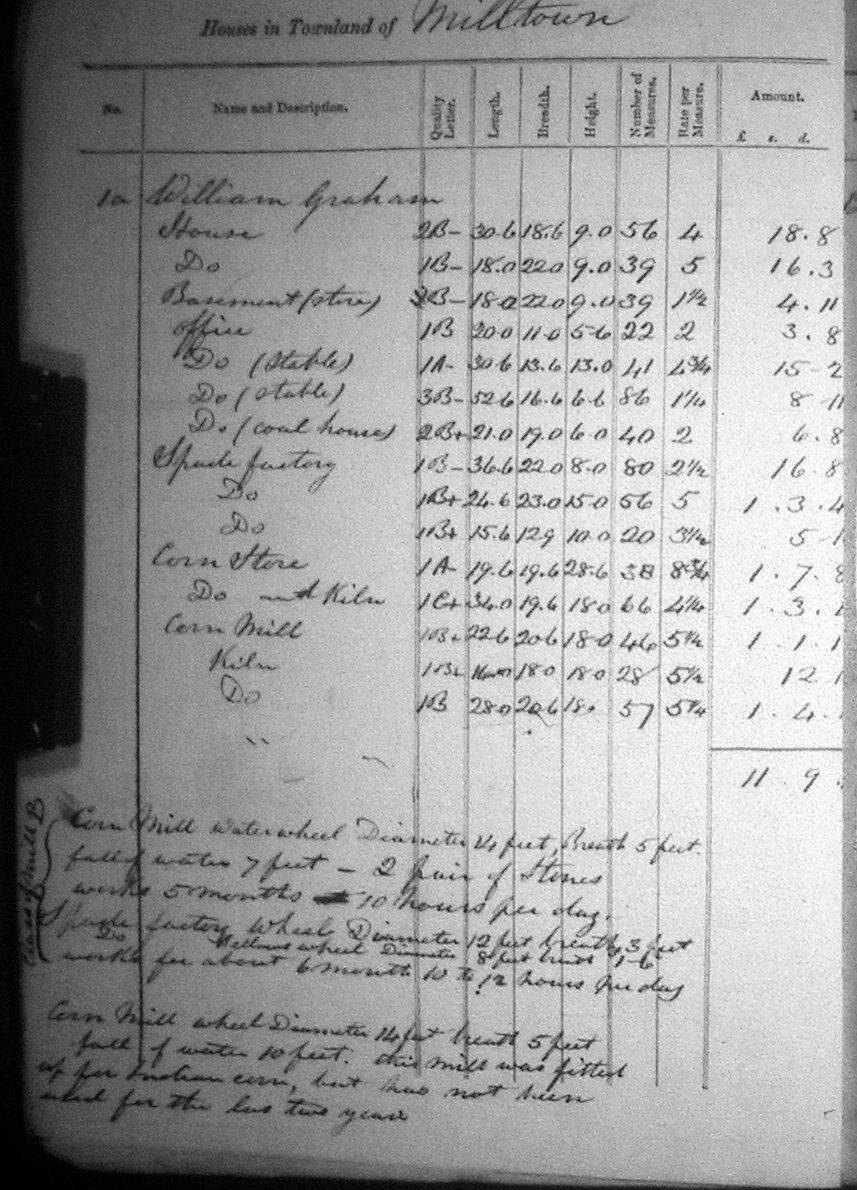 Houses in Townland of Milltown
No. Name and Description. Quality Letter. Length. Breadth. Height. Number of Measures. Rate per Measure. Amount.
£ s. d.
1a William Graham
House 2B- 30.6 18.6 9.0 56 4 18.8
Do 1B- 18.0 22.0 9.0 39 5 16.3
Basement (store) 3B- 18.0 22.0 9.0 39 1½ 4.11
office 1B 20.0 11.0 5.6 22 2 3.8
Do (Stable) 1A- 30.6 13.6 13.0 41 4¾ 15-2
Do (Stable) 3B- 52.6 16.6 6.6 86 1¼ 8 11
Do (coal house) 2B+ 21.0 19.0 6.0 40 2 6.8
Spade factory 1B- 36.6 22.0 8.0 80 2½ 16.8
Do 1B+ 24.6 23.0 15.0 56 5 1.3.4
Do 1B+ 15.6 12.9 10.0 20 3½ 5-1
Corn Store 1A- 19.6 19.6 28.6 38 8¾ 1.7.8
Do and Kiln 1C+ 34.0 19.6 18.0 66 4¼ 1.3.
Corn Mill 1B+ 22.6 20.6 18.0 46 5½ 1.1.1
Kiln 1B+ 18.0 18.0 28 5½ 12 1
Do 1B 28.0 20.6 18. 57 5¼ 1.4.
"
11.9.
Class of Mill B
Corn Mill water wheel Diameter 14 feet, Breath 5 feet.
fall of water 7 feet — 2 pair of Stones
works 5 months 10 hours per day.
Spade factory Wheel Diameter 12 feet breath 3 feet
Do Bellows wheel Diameter 8 feet breath 1-6
works for about 6 months 10 to 12 hours per day
Corn Mill wheel Diameter 14 feet breath 5 feet
fall of water 10 feet. this mill was fitted
up for Indian corn, but has not been
used for the las two years